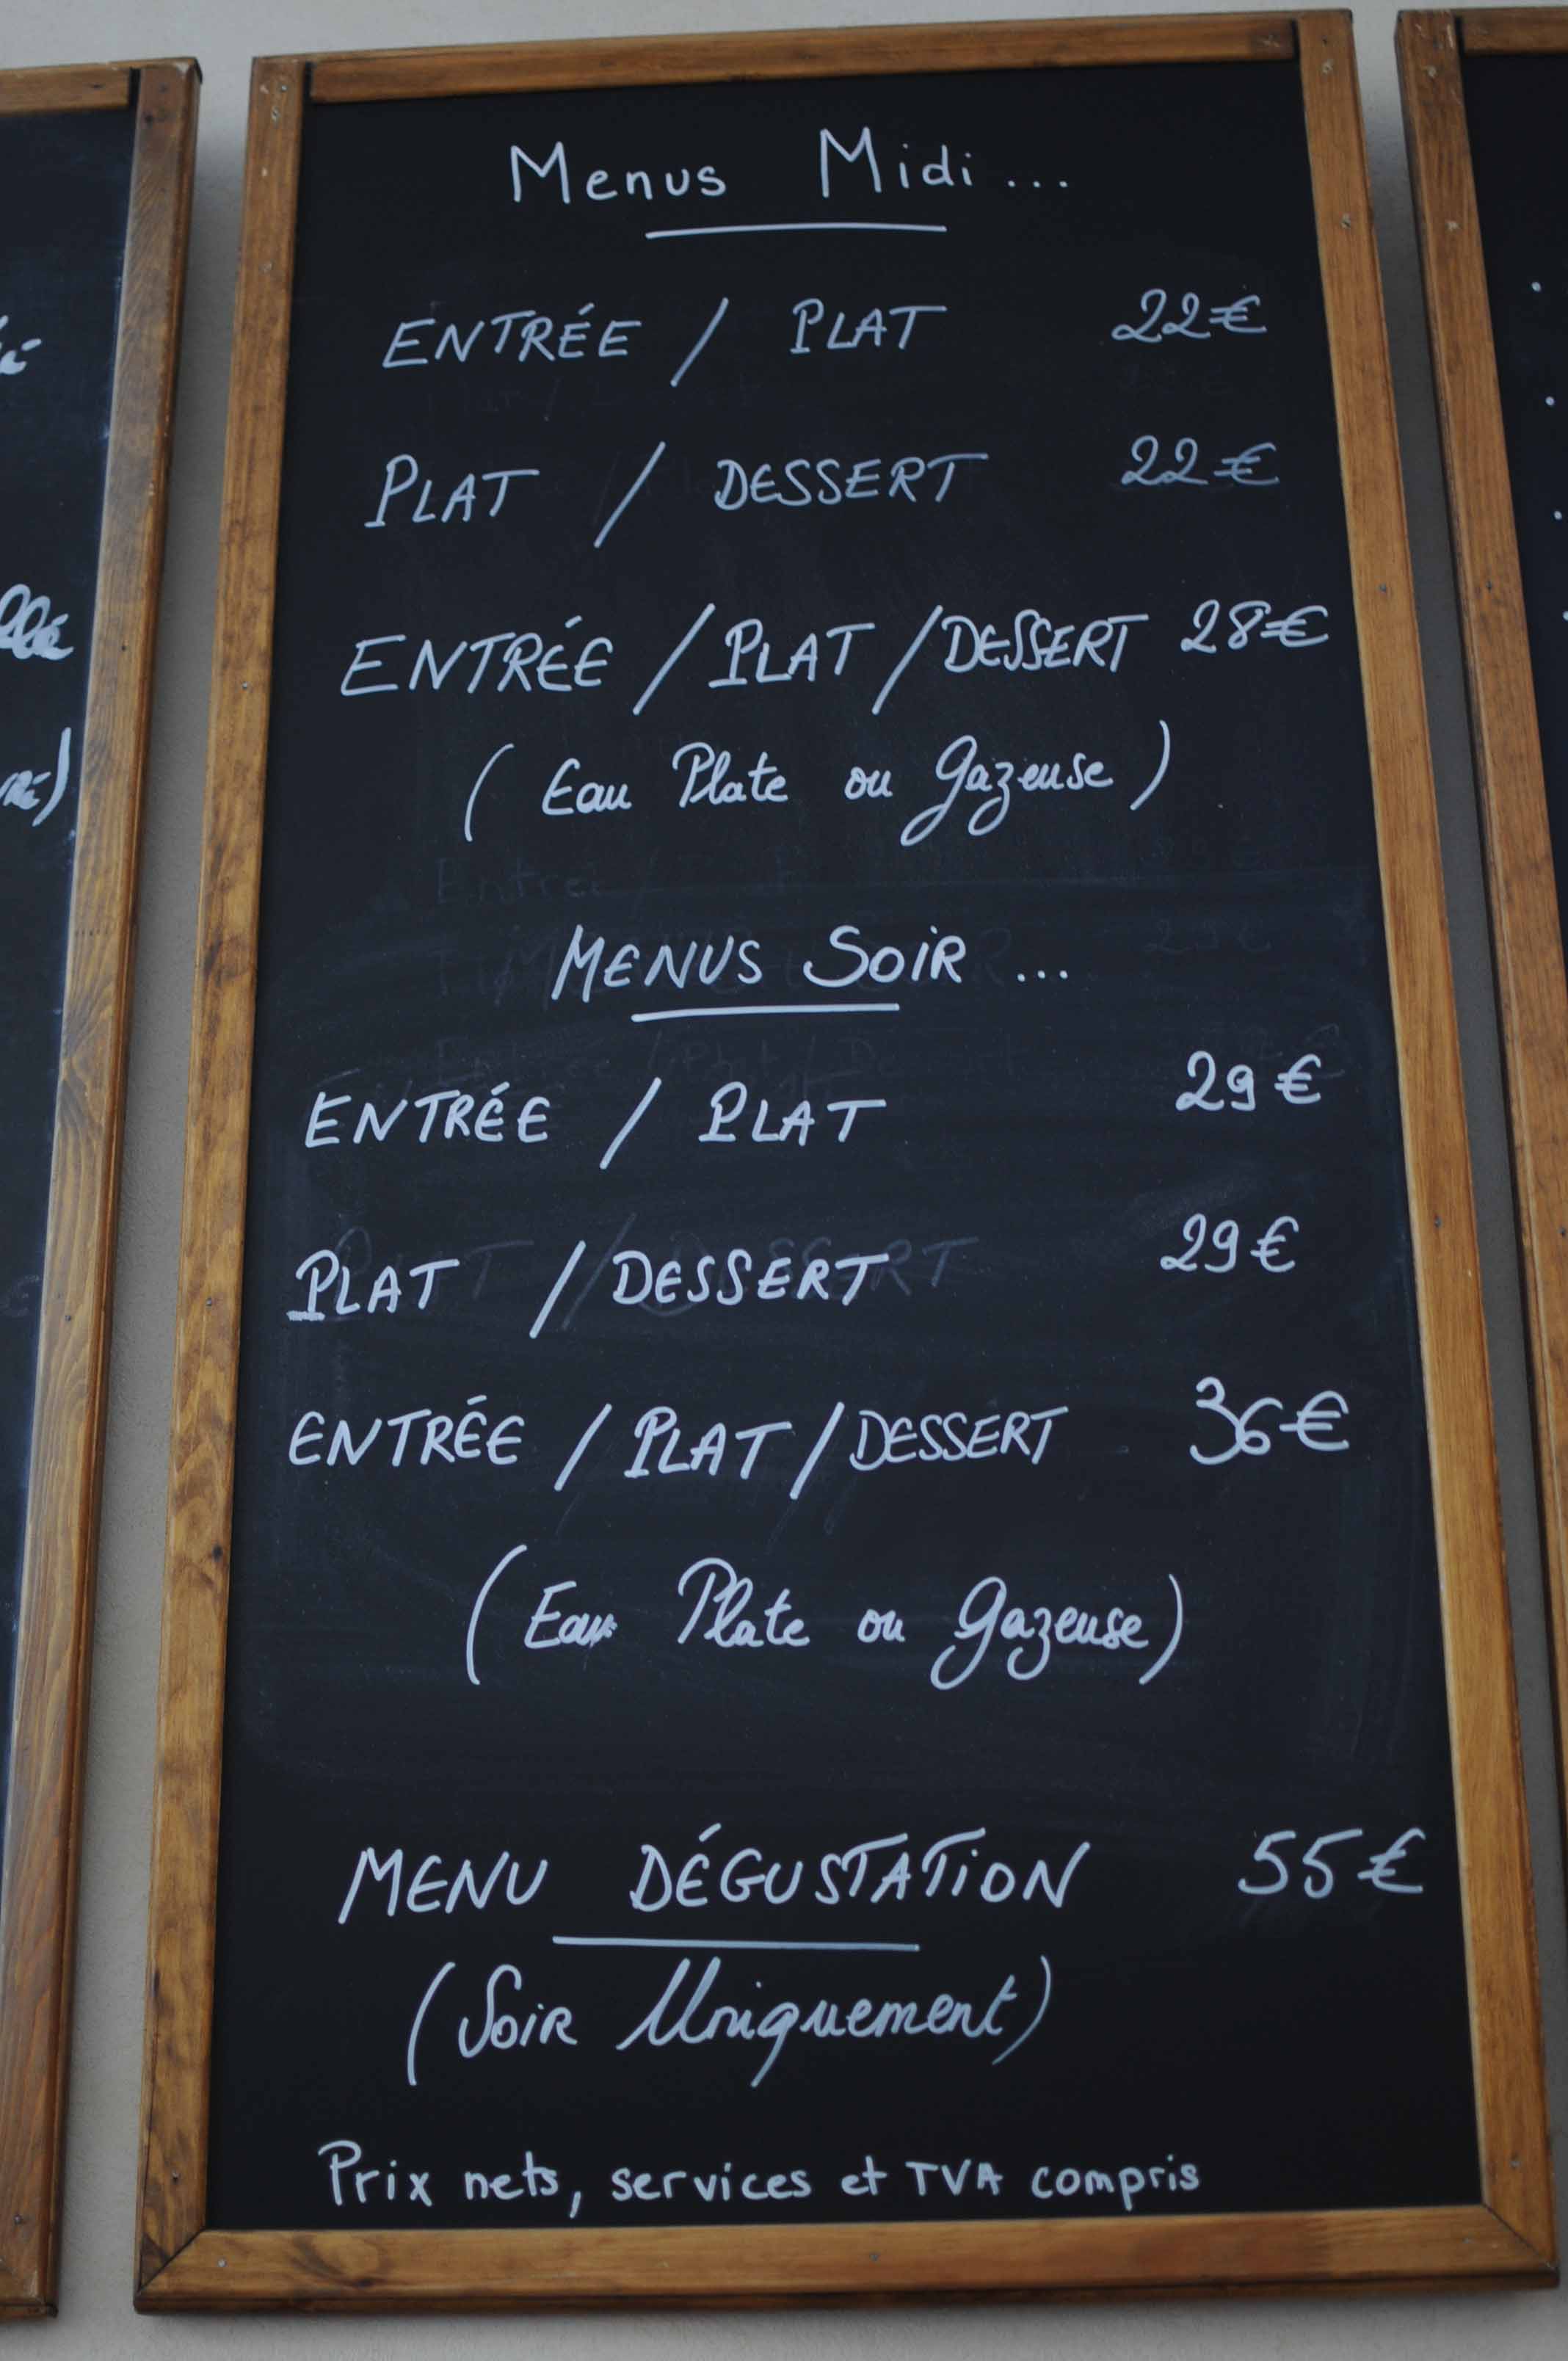 Menus Midi...
ENTRÉE / PLAT 22€
PLAT / DESSERT 22€
ENTRÉE / PLAT / DESSERT 28€
(Eau Plate ou Gazeuse)
MENUS SOIR ...
ENTRÉE / PLAT 29€
PLAT / DESSERT 29€
ENTRÉE / PLAT / DESSERT 36€
(Eau Plate ou Gazeuse)
MENU DÉGUSTATION 55€
(Soir Uniquement)
Prix nets, services et TVA compris